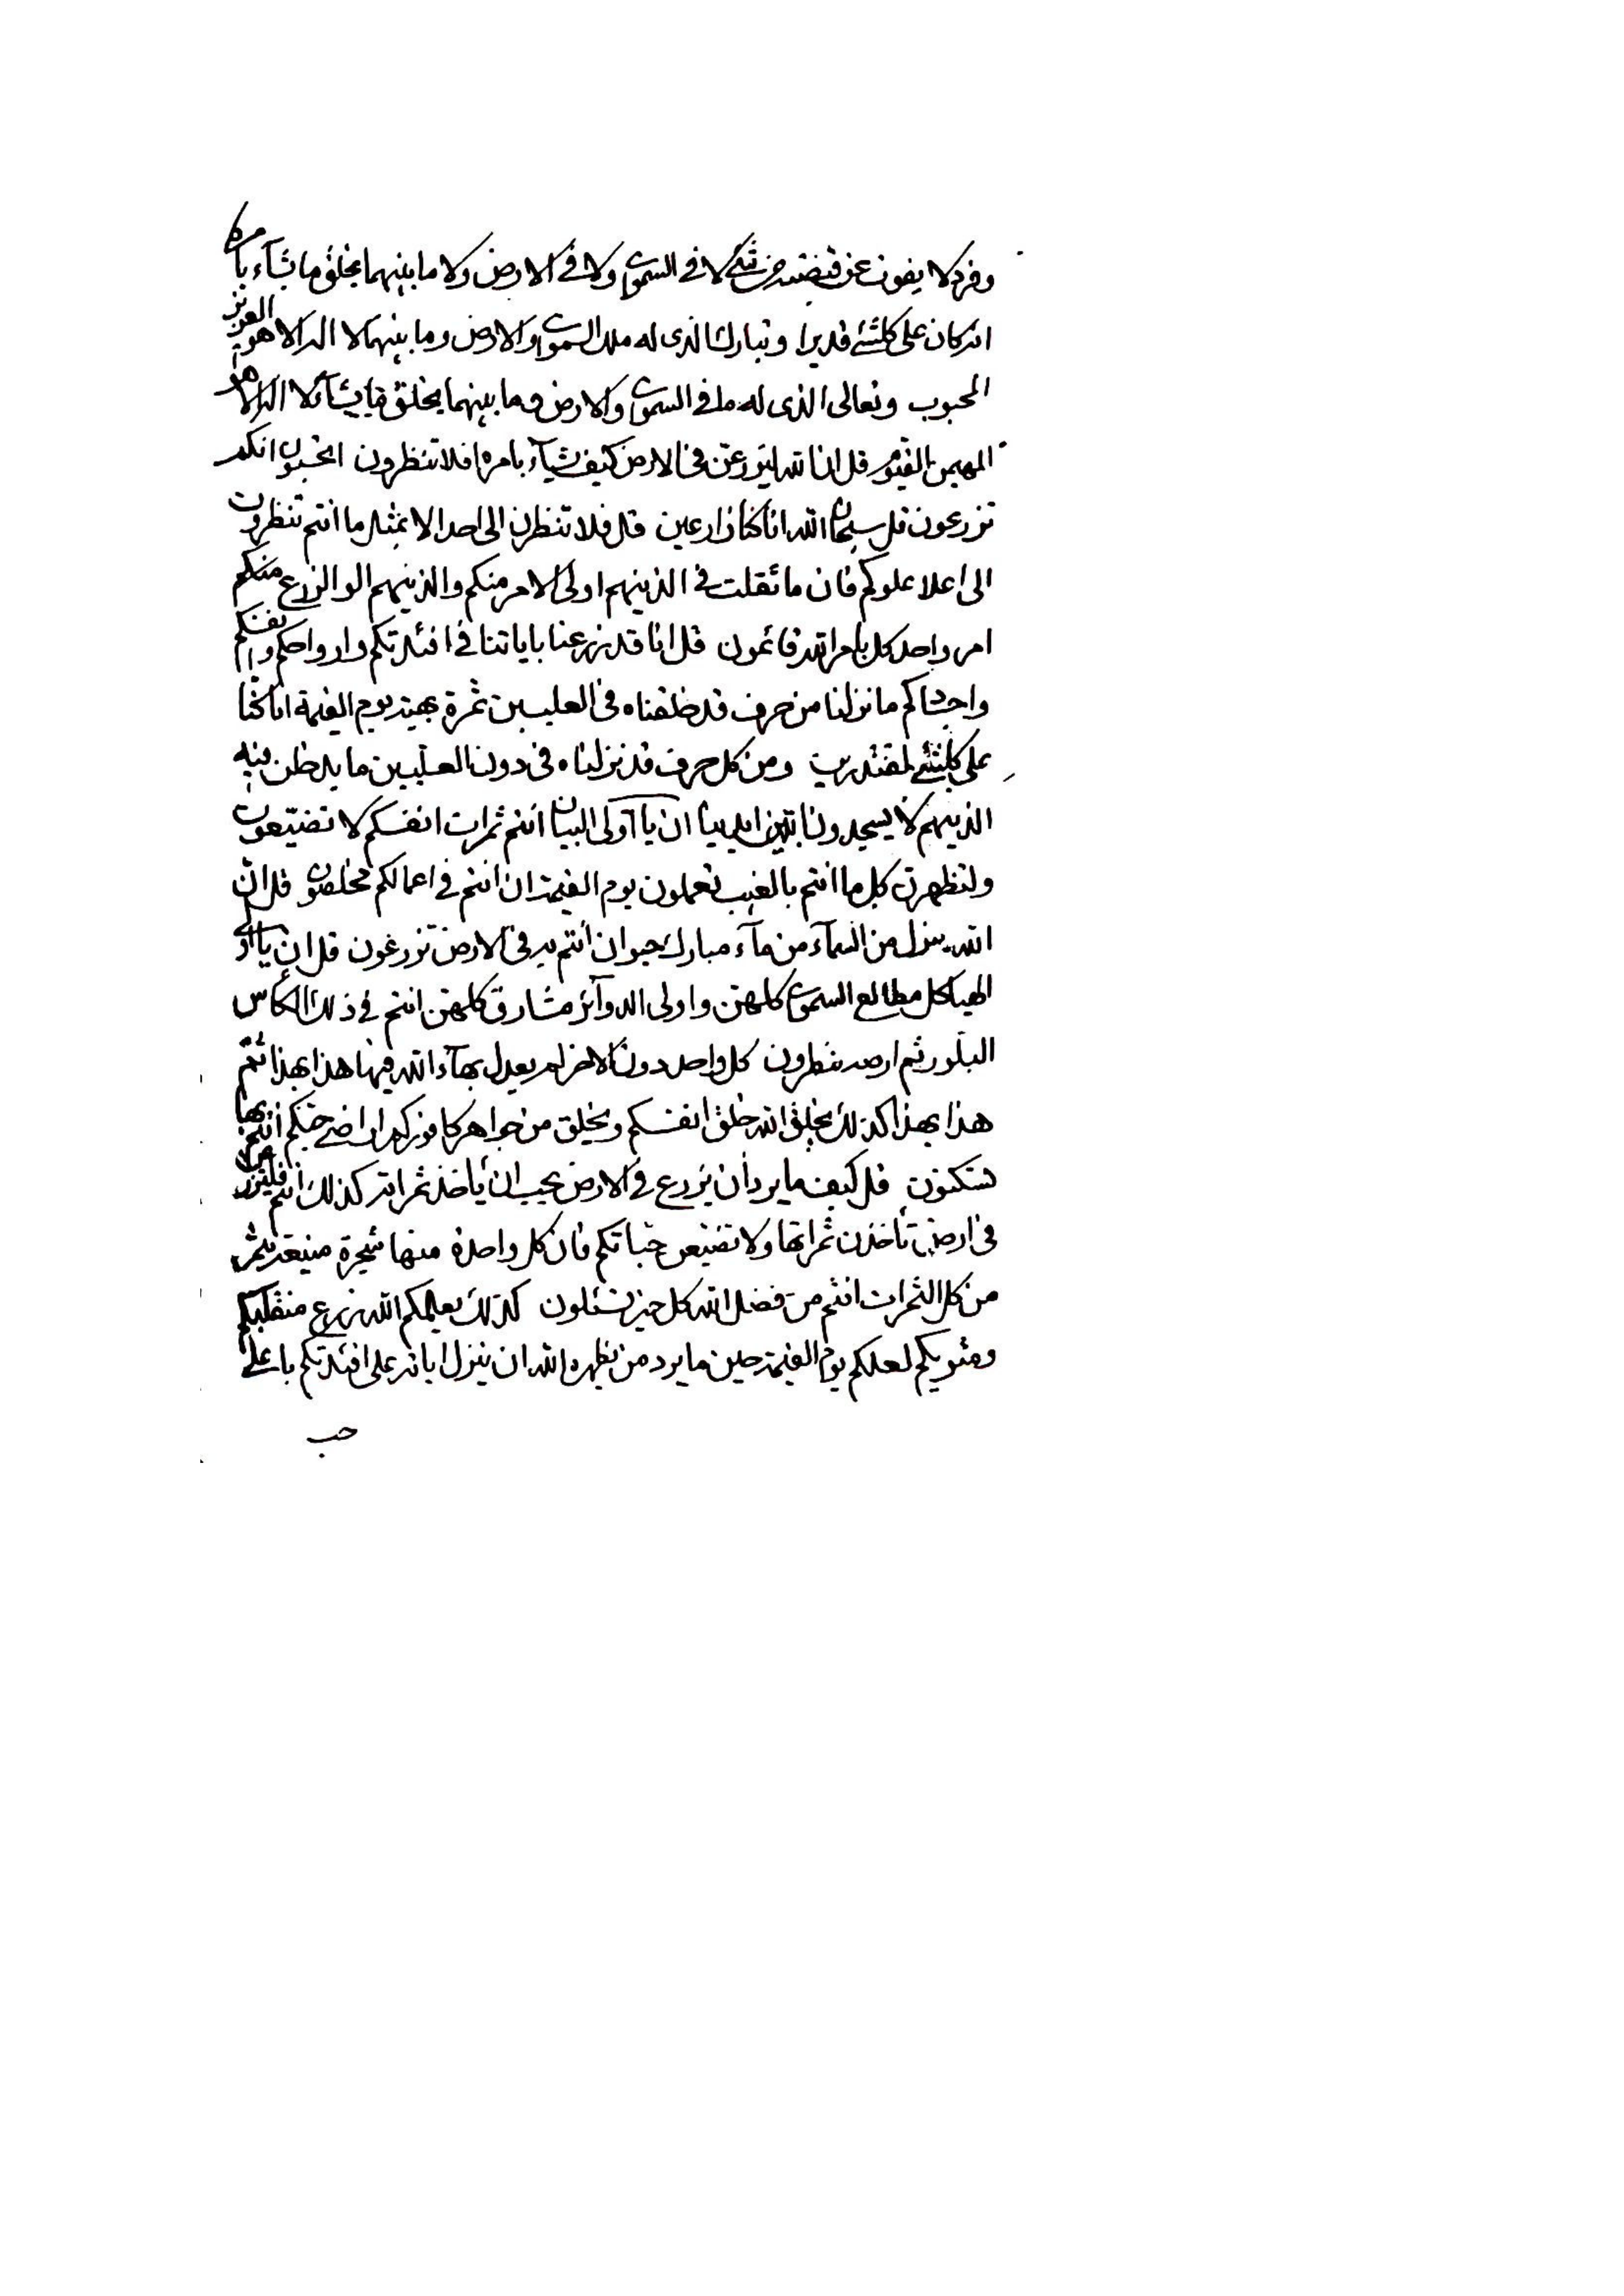 وفرد لا يفوت عن قبضته من شئ لا فى السموات ولا فى الارض ولا ما بينهما يخلق ما يشآء بامره
انه كان على كلشئ قديرا وتبارك الذى له ملك السموات والارض وما بينهما لا اله الا هو العزيز
المحبوب وتعالى الذى له ما فى السموات والارض وما بينهما يخلق ما يشآء لا اله الا هو
المهيمن القيوم قل ان الله ليزرعن فى الارض كيف يشآء بامره افلا تنظرون اتحسبون انكم
تزرعون قل سبحان الله انا كنا زارعين قل فلا تنظرن الى احد الا بمثل ما انتم تنظرون
الى اعلا علوكم فان ما نقلت فى الذينهم اولى الامر منكم والذينهم الوا الزرع منكم
امر واحد كل بامر الله قائمون قل انا قد زرعنا باياتنا فى افئدتكم وارواحكم وانفسكم
واجسادكم ما نزلنا من حرف قد خلقناه فى العليين ثمرة بهية يوم القيمة انا كنا
على كلشئ لمقتدرين ومن كل حرف قد نزلناه فى دون العليين ما يدخلن فيه
الذينهم لا يسجدون لله ان يا اولى البيان انتم ثمرات انفسكم لا تضيعون
ولتظهرن كل ما انتم بالغيب تعملون يوم القيمة ان انتم فى اعمالكم مخلصون قل ان
الله ينزل من السمآء من مآء مبارك حيوان انتم به فى الارض تزرعون قل ان يا اولى
الهياكل مطالع السموات كلهن واولى الدوآئر مشارق كلهن انتم فى ذلك الكاس
البلور ثم ارضه تنظرون كل واحد دون الاخر لم يعدل بهآء الله فيها هذا بهذا ثم
هذا بهذا كذلك يخلق الله خلق انفسكم ويخلق من جواهر كافوركم اراضى جنتكم انتم فيها
تسكنون قل كيف ما يرد ان يزرع فى الارض يجب ان ياخذ ثمراته كذلك انتم فلتزرعن
فى ارض تاخذن ثمراتها ولا تضيعن حباتكم فان كل واحدة منها شجرة منيعة يثمر
من كل الثمرات انتم من فضل الله كل حين تسئلون كذلك يعلمكم الله زرع منقلبكم
ومثويكم لعلكم يوم القيمة حين ما يرد من يظهره الله ان ينزل اياته على افئدتكم باعلى
حب